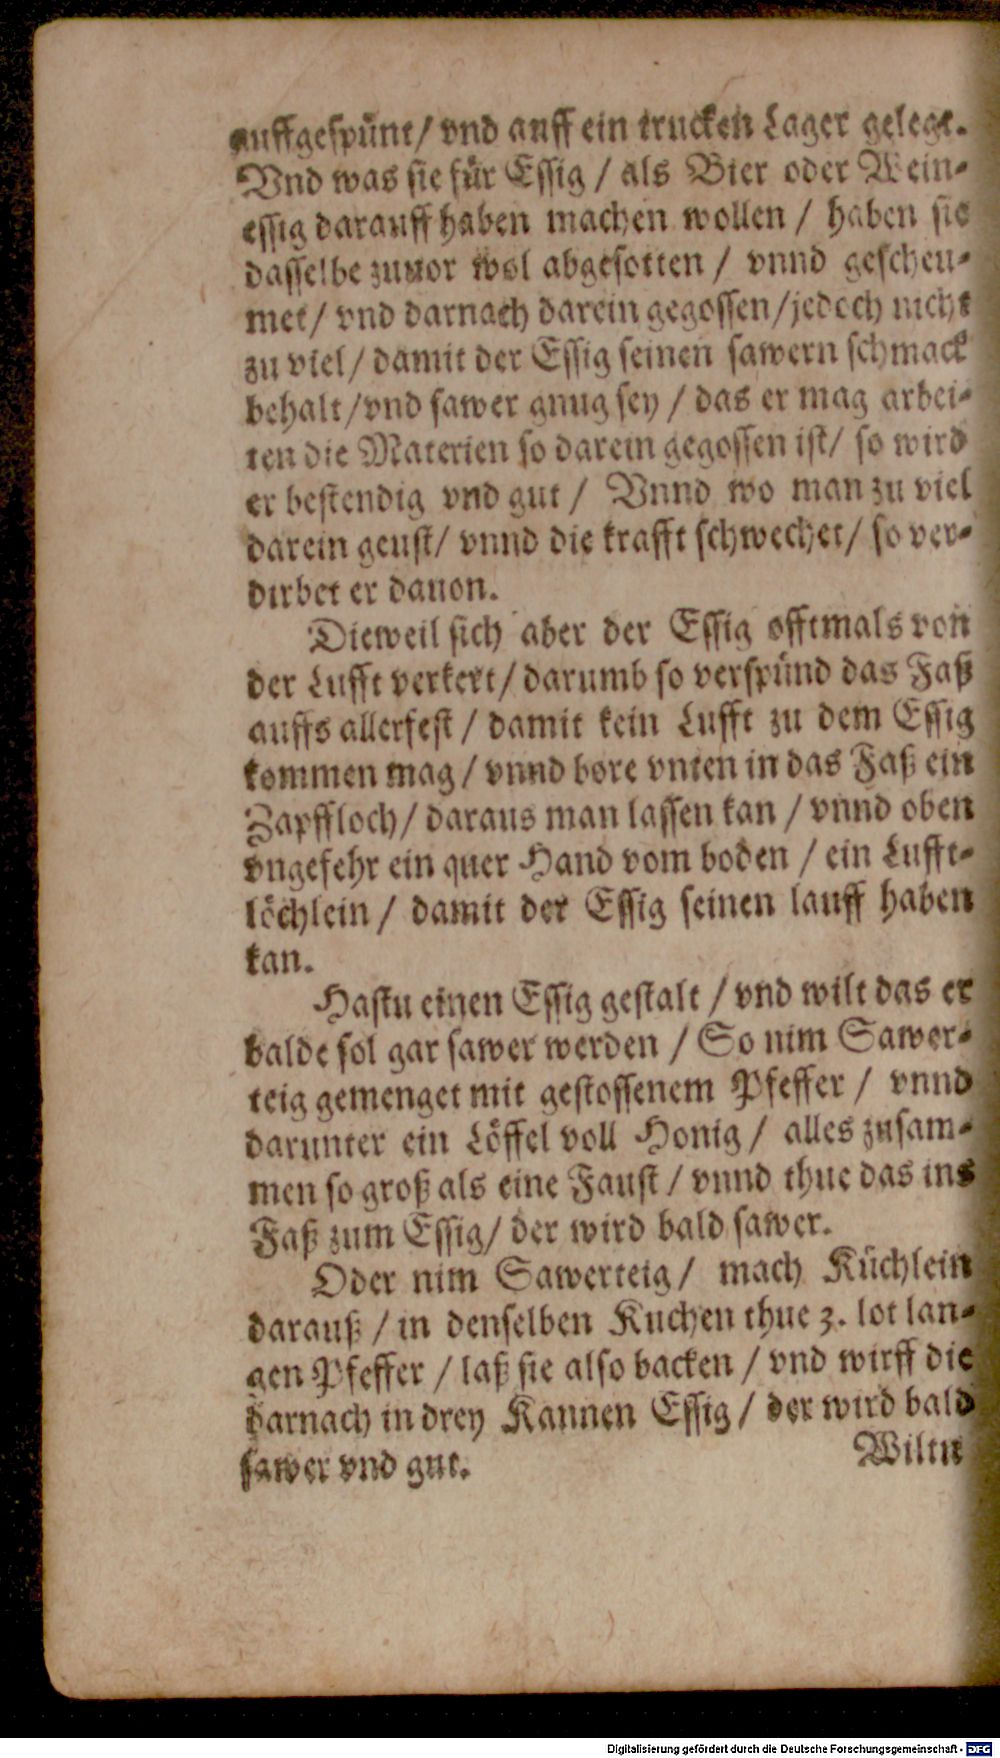 auffgespünt/ vnd auff ein trucken Lager gelegt.
Vnd was sie für Essig / als Bier oder Wein-
essig darauff haben machen wollen / haben sie
dasselbe zuuor wol abgesotten / vnnd gescheu-
met/ vnd darnach darein gegossen/jedoch nicht
zu viel/ damit der Essig seinen sawern schmack
behalt/vnd sawer gnug sey / das er mag arbei-
ten die Materien so darein gegossen ist/ so wird
er bestendig vnd gut / Vnnd wo man zu viel
darein geust/ vnnd die krafft schwechet/ so ver-
dirbet er dauon.
Dieweil sich aber der Essig offtmals von
der Lufft verkert/ darumb so verspünd das Faß
auffs allerfest / damit kein Lufft zu dem Essig
kommen mag / vnnd bore vnten in das Faß ein
Zapffloch/ daraus man lassen kan / vnnd oben
vngefehr ein quer Hand vom boden / ein Lufft-
löchlein / damit der Essig seinen lauff haben
kan.
Hastu einen Essig gestalt / vnd wilt das er
balde sol gar sawer werden / So nim Sawer-
teig gemenget mit gestossenem Pfeffer / vnnd
darunter ein Löffel voll Honig / alles zusam-
men so groß als eine Faust / vnnd thue das ins
Faß zum Essig/ der wird bald sawer.
Oder nim Sawerteig / mach Küchlein
darauß / in denselben Kuchen thue 3. lot lan-
gen Pfeffer / laß sie also backen / vnd wirff die
darnach in drey Kannen Essig / der wird bald
sawer vnd gut.
Wiltu
Digitalisierung gefördert durch die Deutsche Forschungsgemeinschaft - DFG